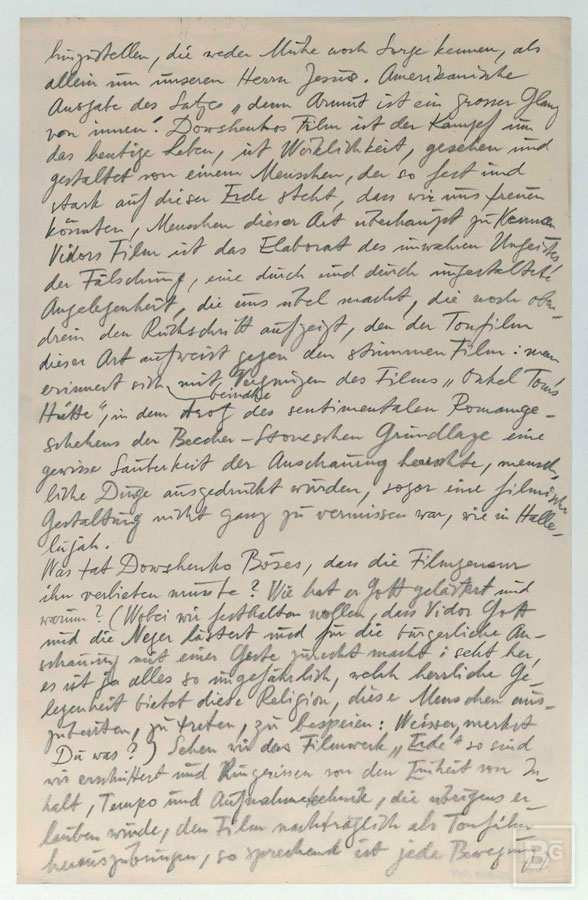 hinzustellen, die weder Mühe noch Sorge kennen, als
allein um unseren Herrn Jesus. Amerikanische
Ausgabe des Satzes „denn Armut ist ein grosser Glanz
von innen". Dowshenkos Film ist der Kampf um
das heutige Leben, ist Wirklichkeit, gesehen und
gestaltet von einem Menschen, der so fest und
stark auf dieser Erde steht, dass wir uns freuen
könnten, Menschen dieser Art überhaupt zu kennen
Vidors Film ist das Elaborat des unwahren Ungeistes
der Fälschung, eine durch und durch ungestaltete
Angelegenheit, die uns übel macht, die noch oben-
drein den Rückschritt aufzeigt, den der Tonfilm
dieser Art aufweist gegen den stummen Film: man
erinnert sich mit Vergnügen des Films „Onkel Tom's
Hütte", in dem trotz des sentimentalen Romange-
schehens der Beecher-Stoweschen Grundlage eine
gewisse Sauberkeit der Anschauung herrschte, mensch-
liche Dinge ausgedrückt wurden, sogar eine filmische
Gestaltung nicht ganz zu vermissen war, wie in Halle-
lujah.
Was tat Dowshenko Böses, dass die Filmzensur
ihn verbieten musste? Wie hat er Gott gelästert und
warum? (Wobei wir festhalten wollen, dass Vidor Gott
und die Neger lästert und für die bürgerliche An-
schauung mit einer Geste zurecht macht: seht her,
es ist ja alles so ungefährlich, welch herrliche Ge-
legenheit bietet diese Religion, diese Menschen aus-
zubeuten, zu treten, zu bespeien: Weisser, merkst
Du was?) Sehen wir das Filmwerk „Erde" so sind
wir erschüttert und hingerissen von der Einheit von In-
halt, Tempo und Aufnahmetechnik, die übrigens er-
lauben würde, den Film nachträglich als Tonfilm
herauszubringen, so sprechend ist jede Bewegung
BG